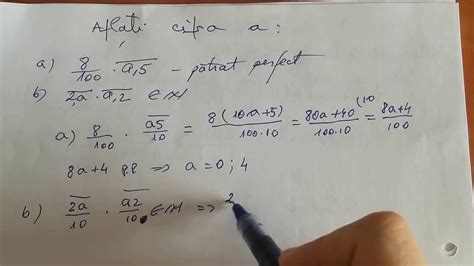 Aflați cifra a:
a) 8/100 · a,5 – pătrat perfect
b) 2,a · a,2 ∈ N
a) 8/100 · a5/10 = 8(10a+5)/100·10 = 80a+40/100·10 (10 = 8a+4/100
8a+4 p.p => a=0;4
b) 2a/10 · a2/10 ∈ N => 2